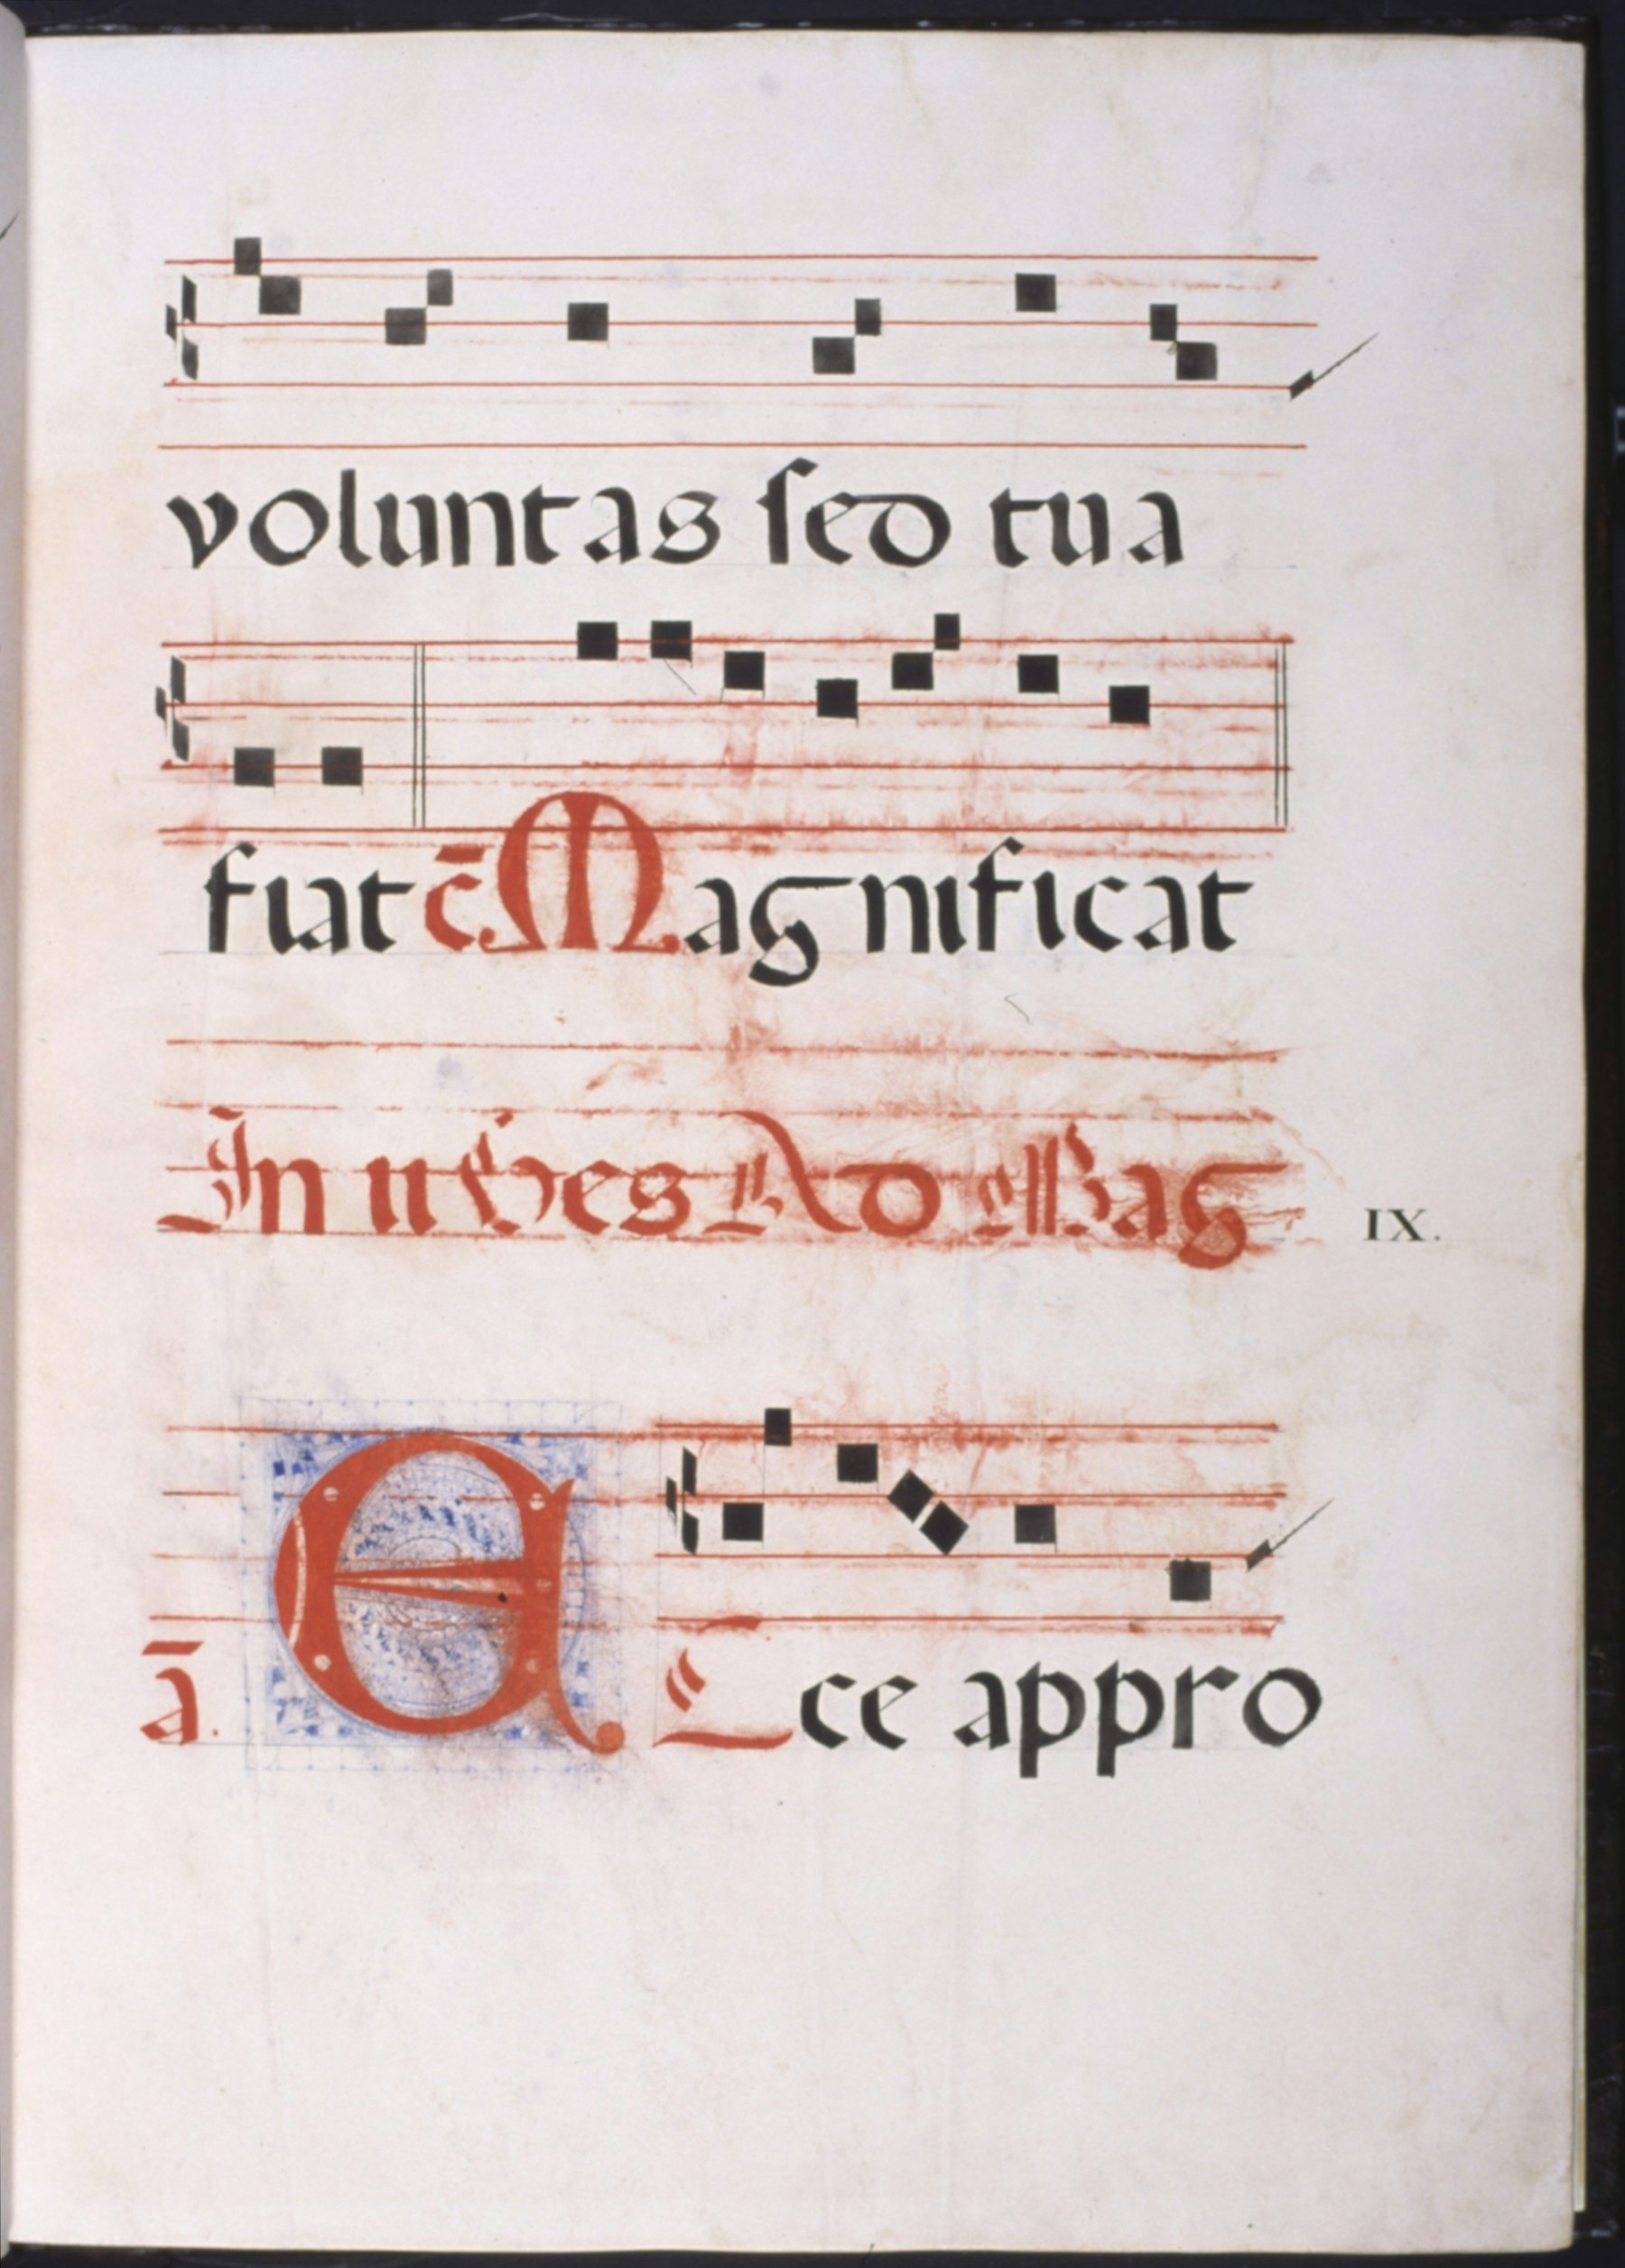 voluntas sed tua
fiat c̄ Magnificat
In u Ves Ad Mag
IX.
ā. E Ecce appro